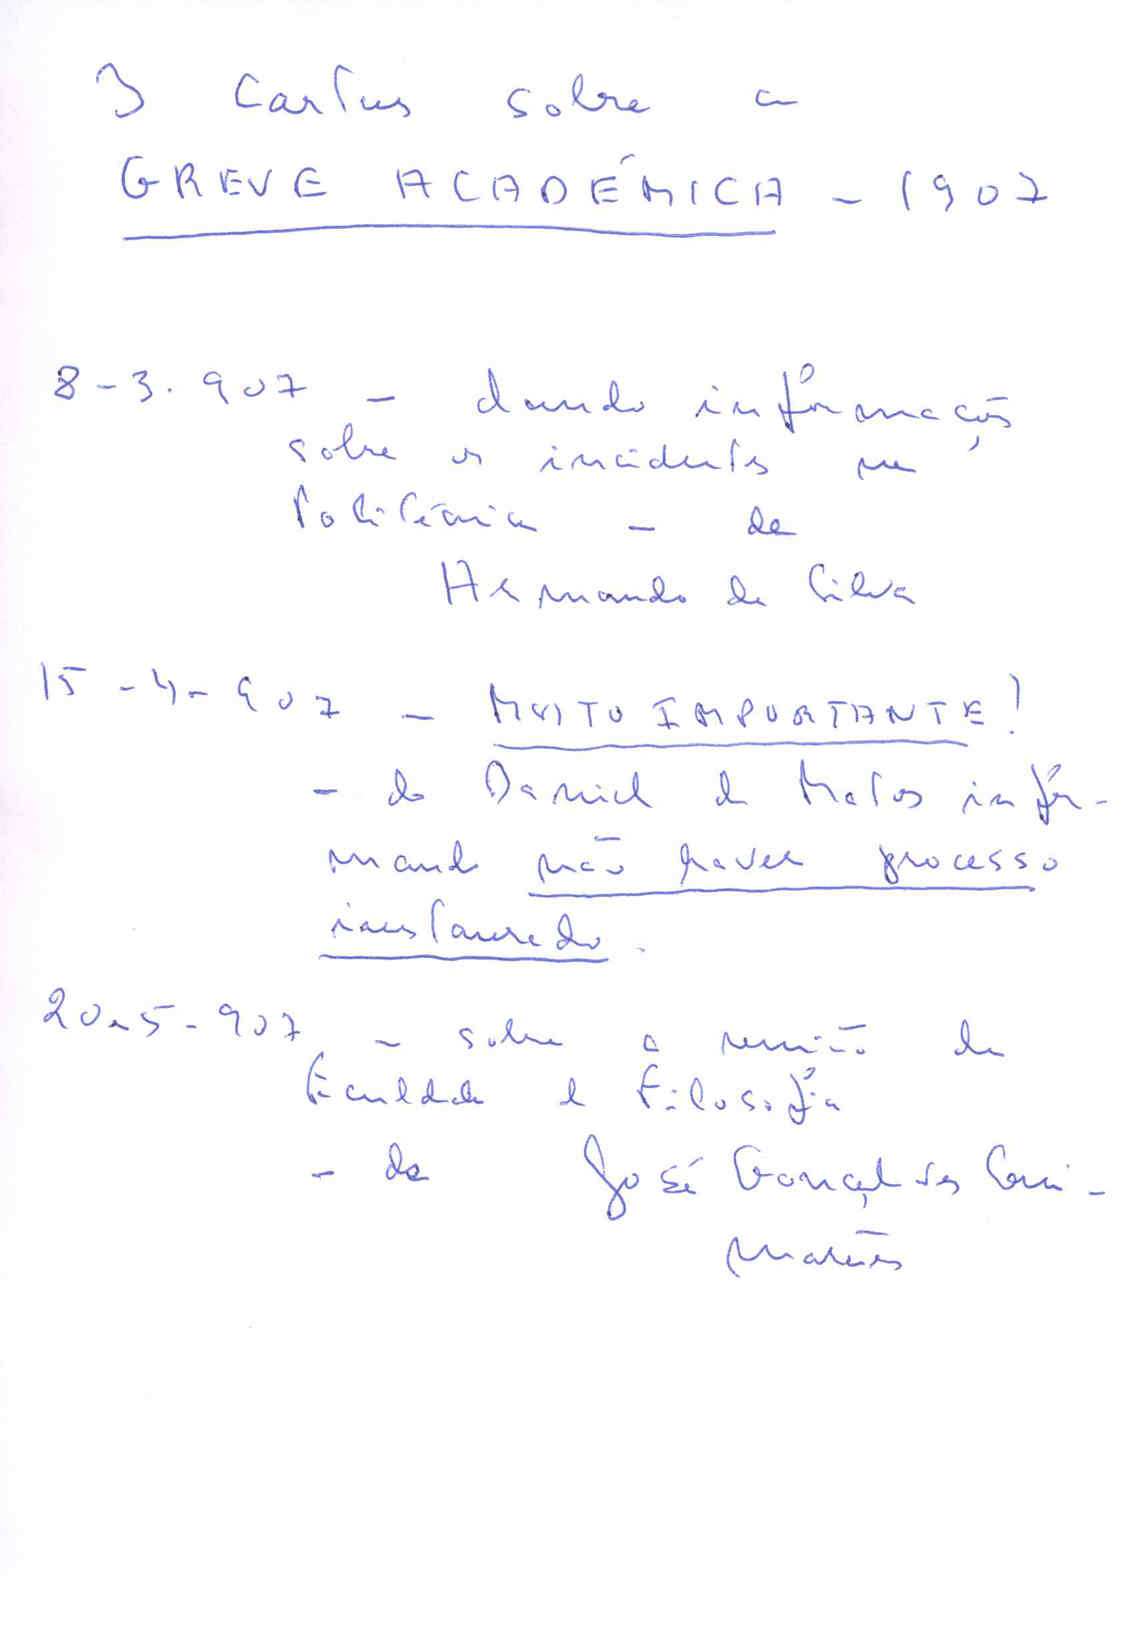 3 Cartas sobre a
GREVE ACADÉMICA - 1907
8-3.907 - dando informações
sobre os incidentes na
Politécnica - de
Armando da Silva
15-4-907 - MUITO IMPORTANTE!
- do Daniel de Matos infor-
mando não haver processo
instaurado.
20-5-907 - sobre a reunião da
Faculdade de Filosofia
- de José Gonçalves Gui-
marães